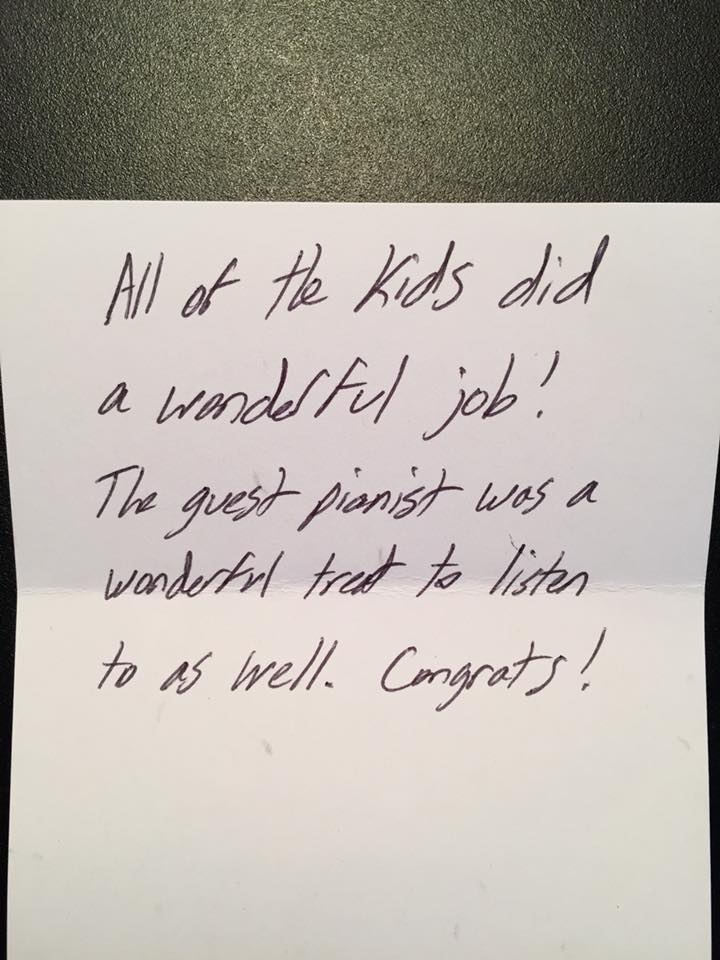 All of the Kids did
a wonderful job!
The guest pianist was a
wonderful treat to listen
to as well. Congrats!